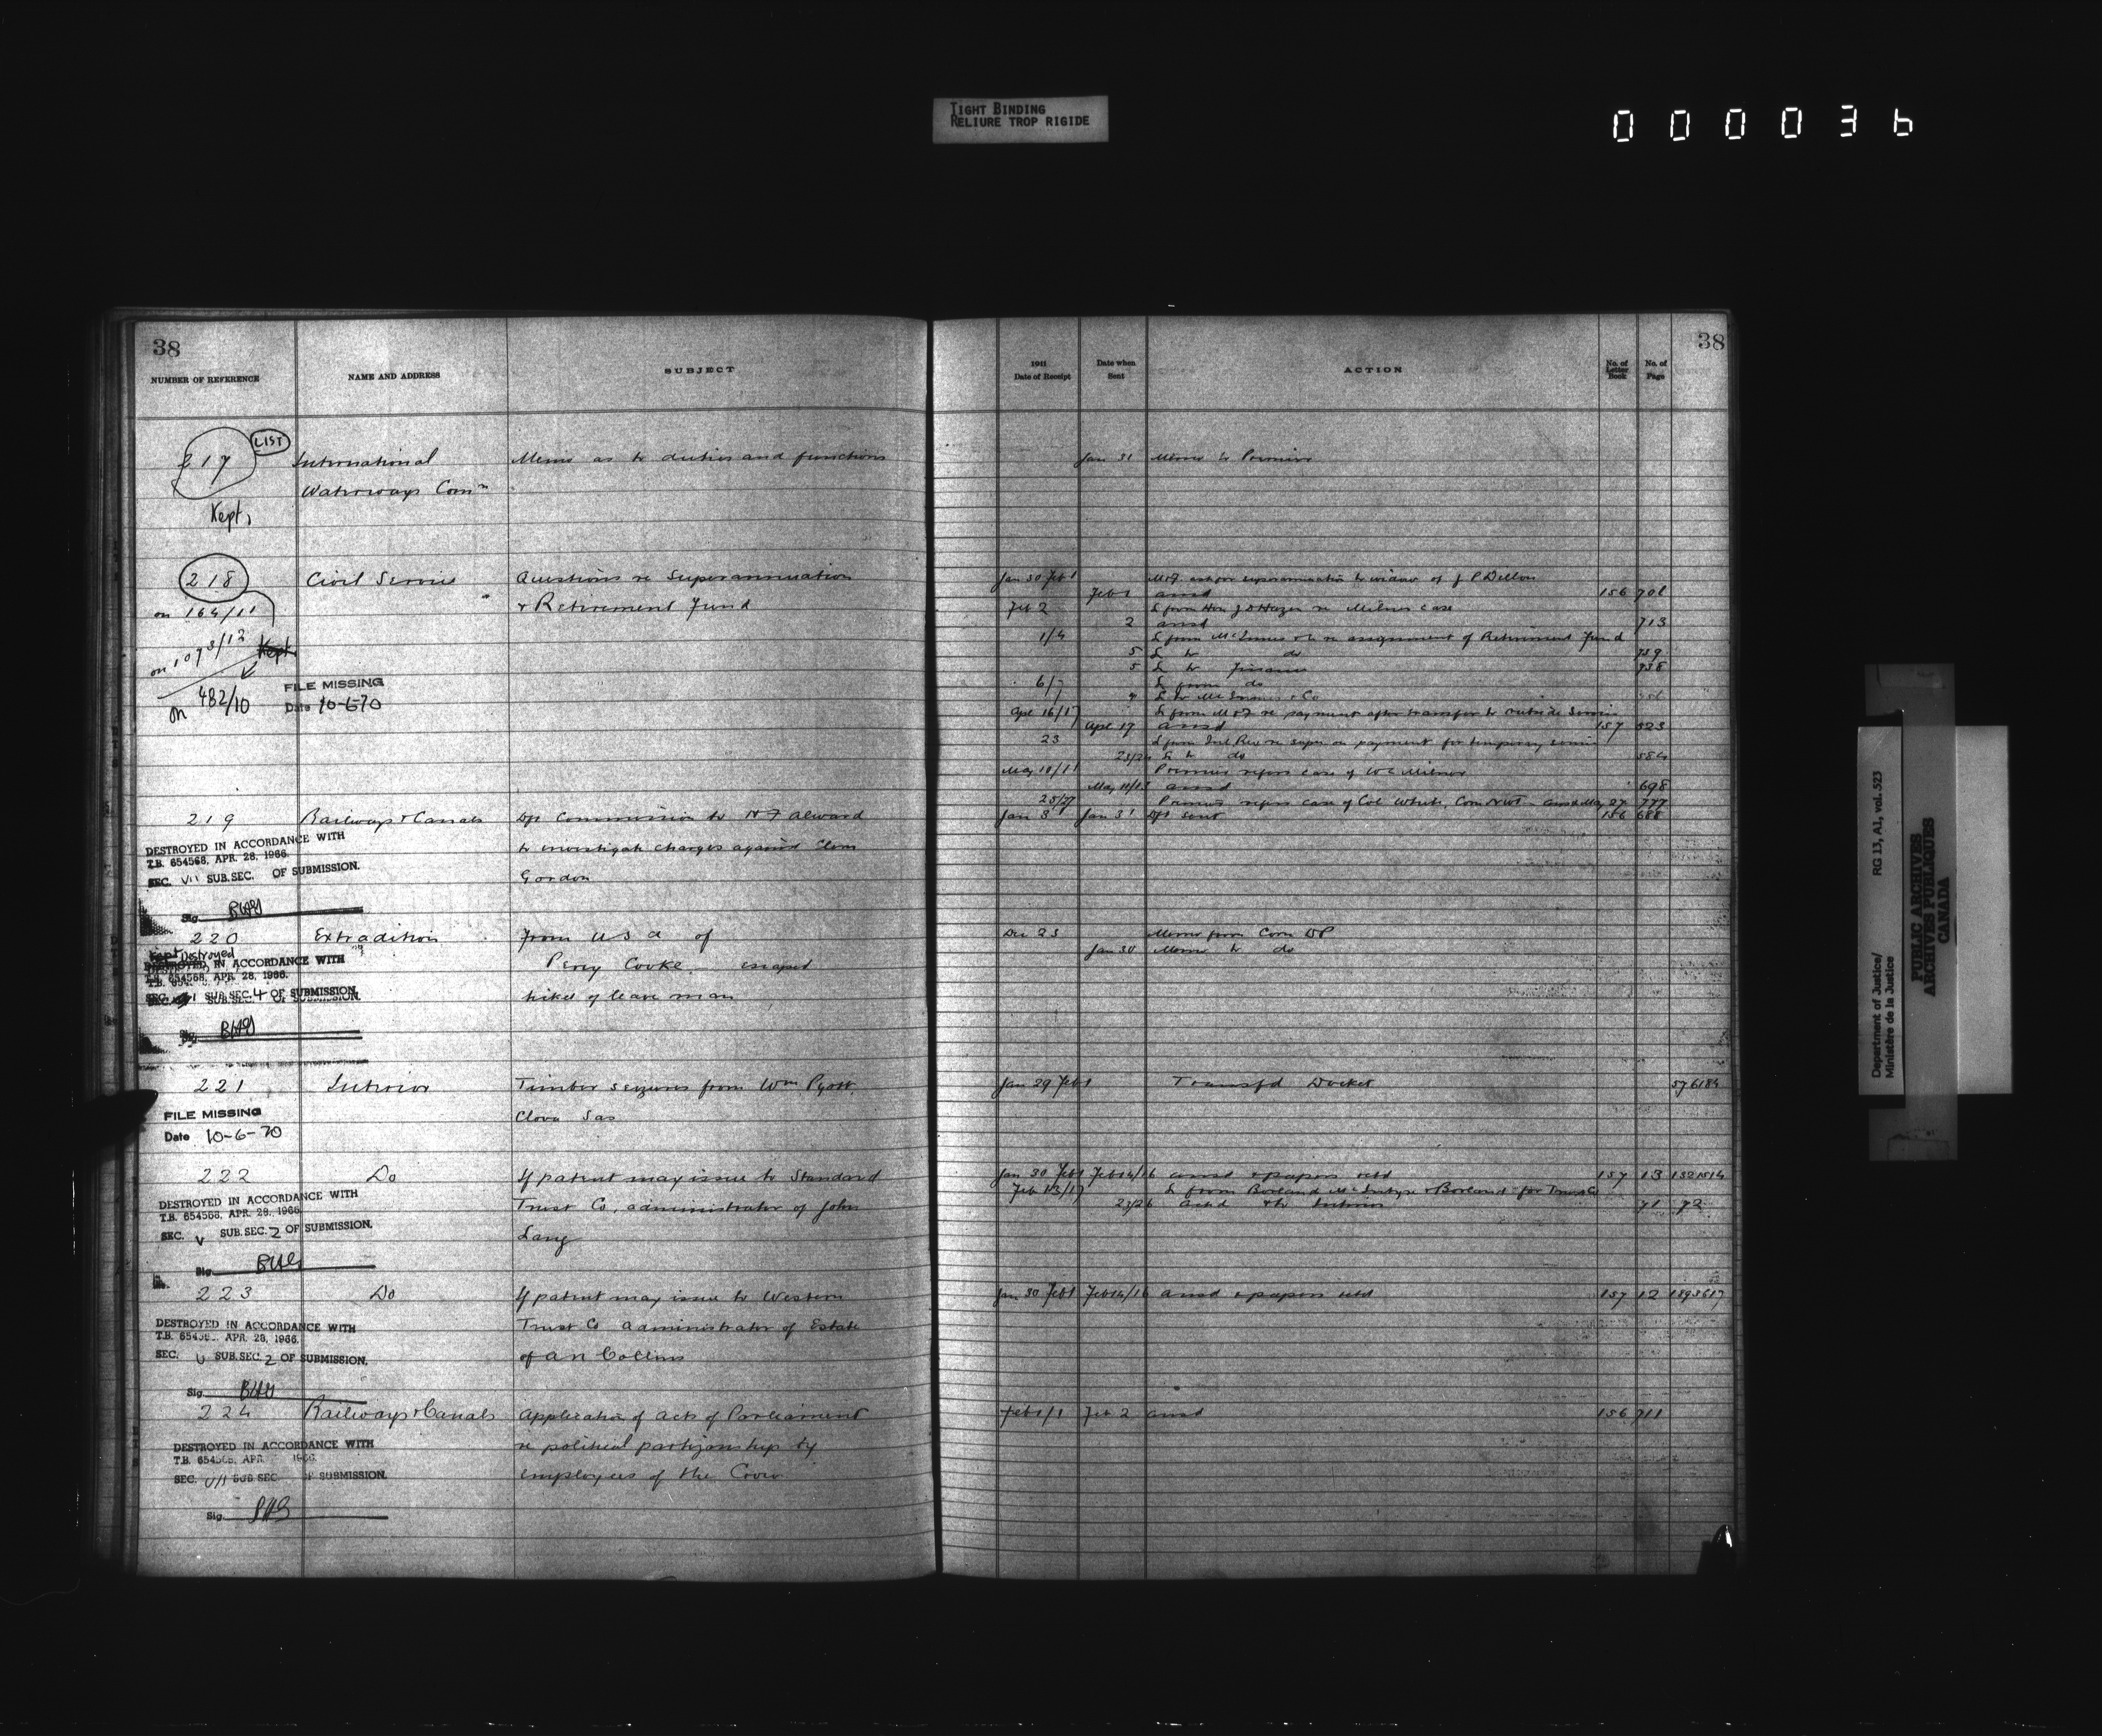 TIGHT BINDING
RELIURE TROP RIGIDE
000036
38
NUMBER OF REFERENCE NAME AND ADDRESS SUBJECT
217 LIST International Memo as to duties and functions
Waterways Comn
Kept,
218 Civil Service Questions re Superannuation
on 164/11 & Retirement Fund
on 1073/12 Kept
on 482/10
FILE MISSING
Date 10-6-70
219 Railways & Canals Dft Commission to N F Alward
to investigate charges against Clem
Gordon
DESTROYED IN ACCORDANCE WITH
T.B. 654568, APR. 28, 1966.
SEC. VII SUB.SEC. OF SUBMISSION.
Sig.
220 Extradition From U S A of
Percy Cooke escaped
ticket of leave man
Destroyed
DESTROYED IN ACCORDANCE WITH
T.B. 654568, APR. 28, 1966.
SEC. SUB.SEC. 4 OF SUBMISSION.
Sig.
221 Interior Timber seizures from Wm Pyott
Clova Sas
FILE MISSING
Date 10-6-70
222 Do If patent may issue to Standard
Trust Co, administrator of John
Lang
DESTROYED IN ACCORDANCE WITH
T.B. 654568, APR. 28, 1966
SEC. V SUB.SEC. 2 OF SUBMISSION.
Sig.
223 Do If patent may issue to Western
Trust Co administrator of Estate
of A N Collins
DESTROYED IN ACCORDANCE WITH
T.B. 6545 APR. 28, 1966.
SEC. V SUB.SEC. 2 OF SUBMISSION.
Sig.
224 Railways & Canals Application of Acts of Parliament
re political partizanship by
employees of the Crown
DESTROYED IN ACCORDANCE WITH
T.B. 654568, APR 1966
SEC. VII SUB SEC. OF SUBMISSION.
Sig.
38
1911
Date of Receipt Date when Sent ACTION No. of Letter Book No. of Page
Jan 31 Memo to Premier
Jan 30 Feb 1 MofF. ask for superannuation to widow of J P Dillon
Feb 1 ansd 156 701
Feb 2 L from Hon J D Hazen re Milner case
2 ansd 713
1/4 L from McInnes & Co re assignment of Retirement Fund
5 L to do 739
5 L to Finance 738
6/7 L from do
L to McInnes & Co
Apl 16/17 L from MofF re payment after transfer to outside Service
Apl 17 ansd 157 523
23 L from Inl Rev re super on payment for temporary service
23/24 L to do 584
May 10/11 Premier refers case of W C Milner
May 11/13 ansd 698
25/27 Premier refers case of Col White, Com NWT - ansd May 27 777
Jan 3 Jan 31 Dft sent 156 688
Dec 23 Memo from Com DP
Jan 30 Memo to do
Jan 29 Feb 1 Transfd Docket 576184
Jan 30 Feb 1 Feb 14/16 ansd & papers retd 157 13 1321514
Feb 13/17 L from Borland McIntyre & Borland for Trust Co
23/26 ackd & to Interior 71 72
Jan 30 Feb 1 Feb 14/16 ansd & papers retd 157 12 1893617
Feb 1/1 Feb 2 ansd 156 711
Department of Justice/
Ministère de la Justice
RG 13, A1, vol. 523
PUBLIC ARCHIVES
ARCHIVES PUBLIQUES
CANADA